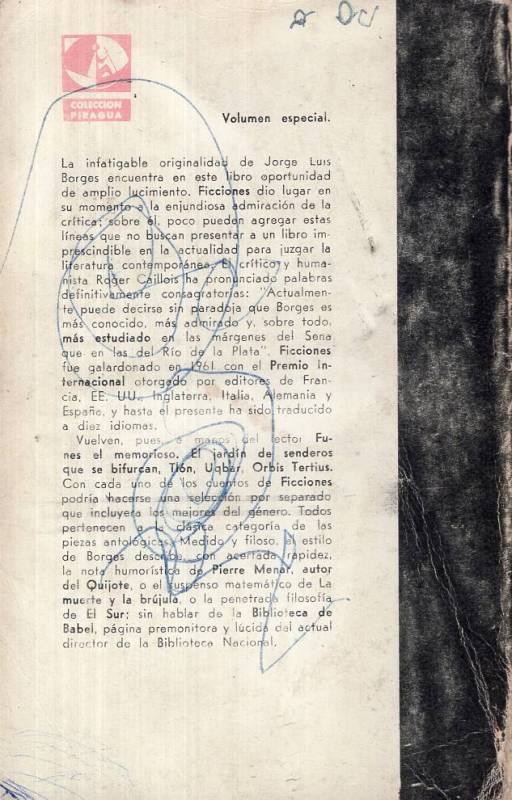 COLECCION
PIRAGUA
Volumen especial.
La infatigable originalidad de Jorge Luis
Borges encuentra en este libro oportunidad
de amplio lucimiento. Ficciones dio lugar en
su momento a la enjundiosa admiración de la
crítica; sobre él, poco pueden agregar estas
líneas que no buscan presentar a un libro im-
prescindible en la actualidad para juzgar la
literatura contemporánea. El crítico y huma-
nista Roger Caillois ha pronunciado palabras
definitivamente consagratorias: "Actualmen-
te puede decirse sin paradoja que Borges es
más conocido, más admirado y, sobre todo,
más estudiado en las márgenes del Sena
que en las del Río de la Plata". Ficciones
fue galardonado en 1961 con el Premio In-
ternacional otorgado por editores de Fran-
cia, EE. UU., Inglaterra, Italia, Alemania y
España, y hasta el presente ha sido traducido
a diez idiomas.
Vuelven, pues, a manos del lector Fu-
nes el memorioso, El jardín de senderos
que se bifurcan, Tlön, Uqbar, Orbis Tertius.
Con cada uno de los cuentos de Ficciones
podría hacerse una selección por separado
que incluyera los mejores del género. Todos
pertenecen a la clásica categoría de las
piezas antológicas. Medido y filoso, el estilo
de Borges describe, con acertada rapidez,
la nota humorística de Pierre Menar, autor
del Quijote, o el suspenso matemático de La
muerte y la brújula, o la penetrada filosofía
de El Sur; sin hablar de la Biblioteca de
Babel, página premonitora y lúcida del actual
director de la Biblioteca Nacional.